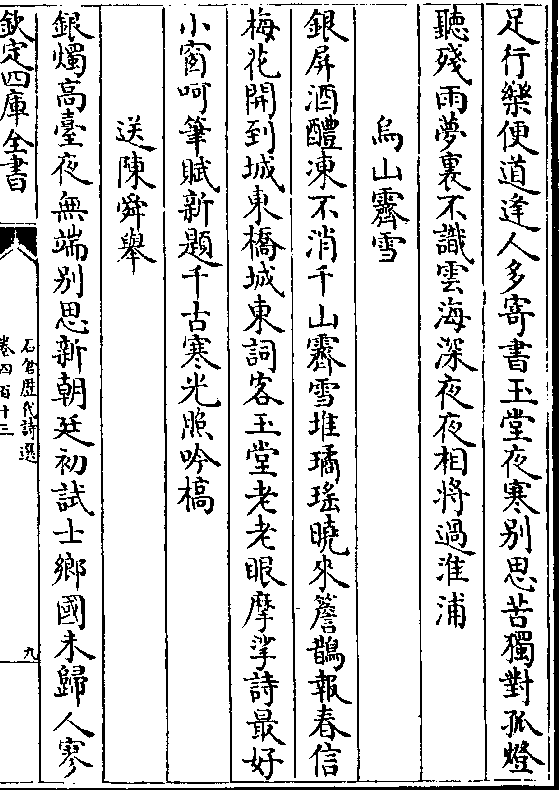 足行樂便道逢人多寄書玉堂夜寒别思苦獨對孤燈
聽殘雨夢裏不識雲海深夜夜相將過淮浦
烏山霽雪
銀屏酒醴凍不消千山霽雪堆璚瑤曉來簷鵲報春信
梅花開到城東橋城東詞客玉堂老老眼摩挲詩最好
小窗呵筆賦新題千古寒光照吟槁
送陳舜舉
銀燭高臺夜無端别思新朝廷初試士鄉國未歸人寥
欽定四庫全書
石倉歴代詩選
卷四百十三
九